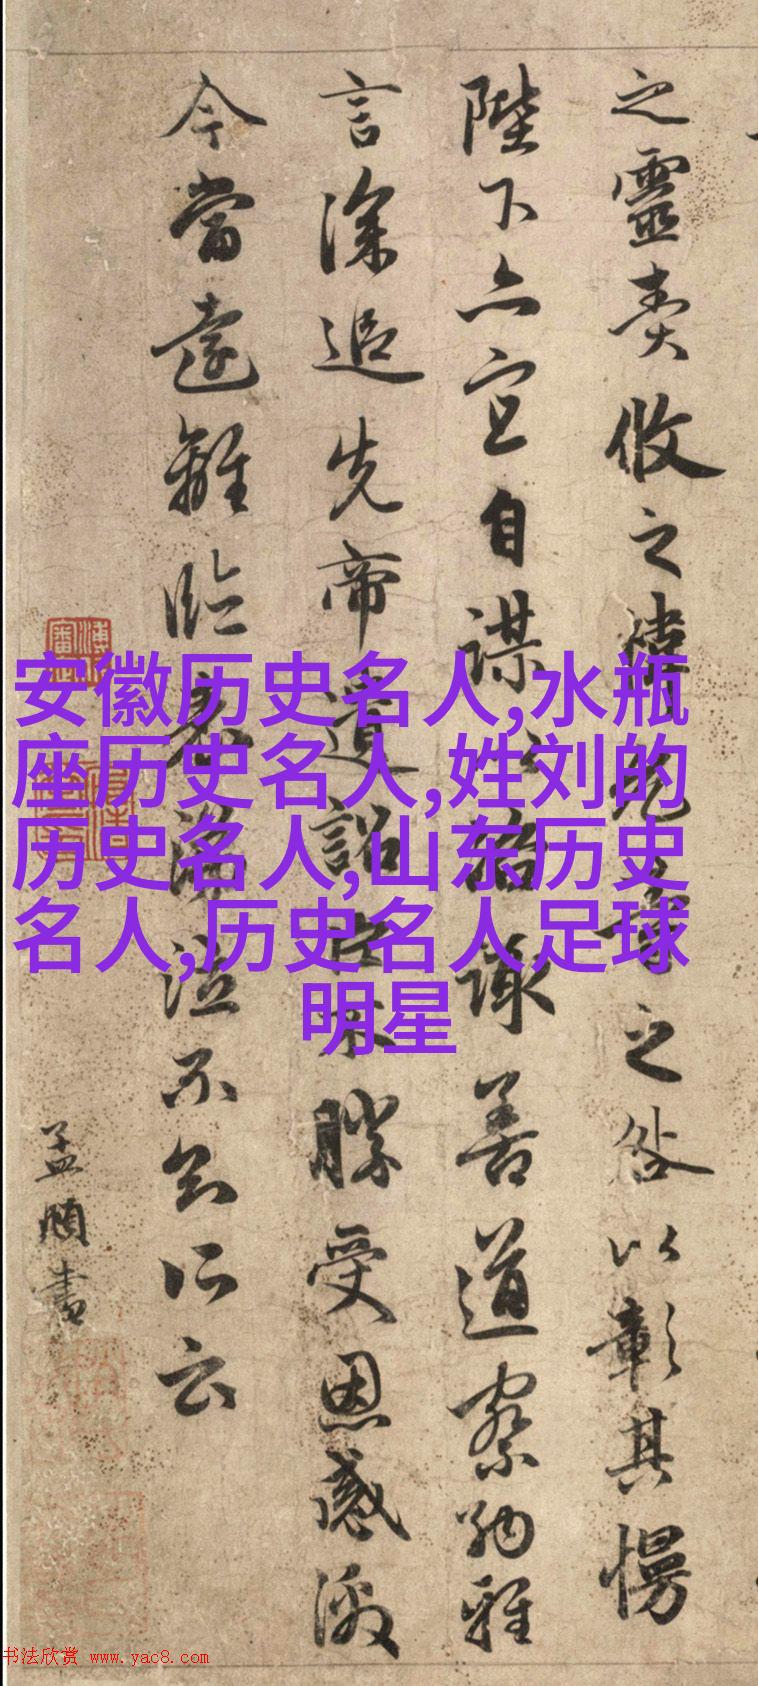 之靈責攸之禕允等之咎以彰其慢
陛下亦宜自謀以諮諏善道察納雅
言深追先帝遺詔臣不勝受恩感激
今當遠離臨表涕泣不知所云
孟頫書
安徽历史名人,水瓶
座历史名人,姓刘的
历史名人,山东历史
名人,历史名人足球
明星
书法欣赏 www.yac8.com